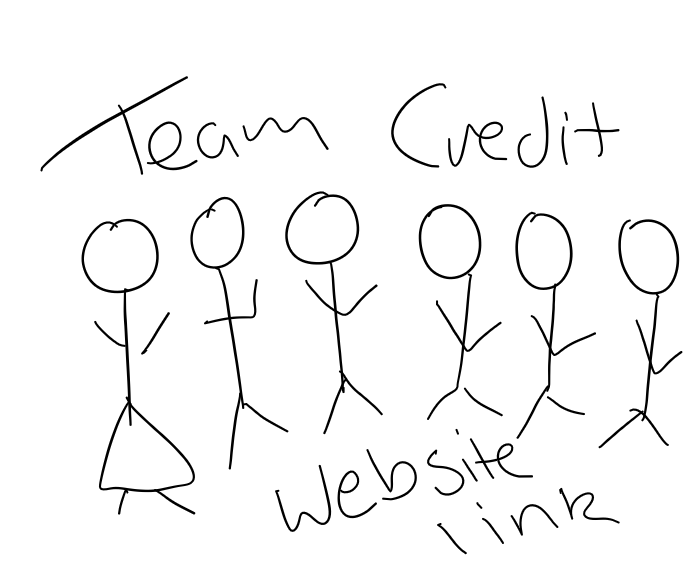 Team Credit
Website
link